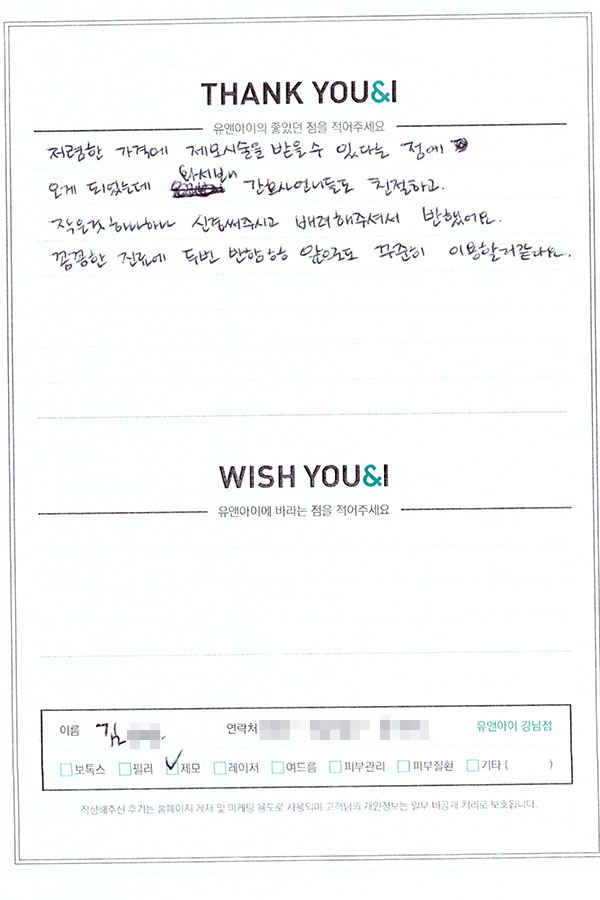 THANK YOU&I
유앤아이의 좋았던 점을 적어주세요
저렴한 가격에 제모시술을 받을수 있다는 점에
오게 되었는데 와서보니 간호사언니들도 친절하고.
작은것 하나하나 신경써주시고 배려해주셔서 반했어요.
꼼꼼한 진료에 두번 반함ㅎㅎ 앞으로도 꾸준히 이용할거같아요.
WISH YOU&I
유앤아이에 바라는 점을 적어주세요
이름 김 연락처 유앤아이 강남점
보톡스 필러 제모 레이저 여드름 피부관리 피부질환 기타 ( )
작성해주신 후기는 홈페이지 게재 및 마케팅 용도로 사용되며 고객님의 개인정보는 일부 비공개 처리로 보호됩니다.